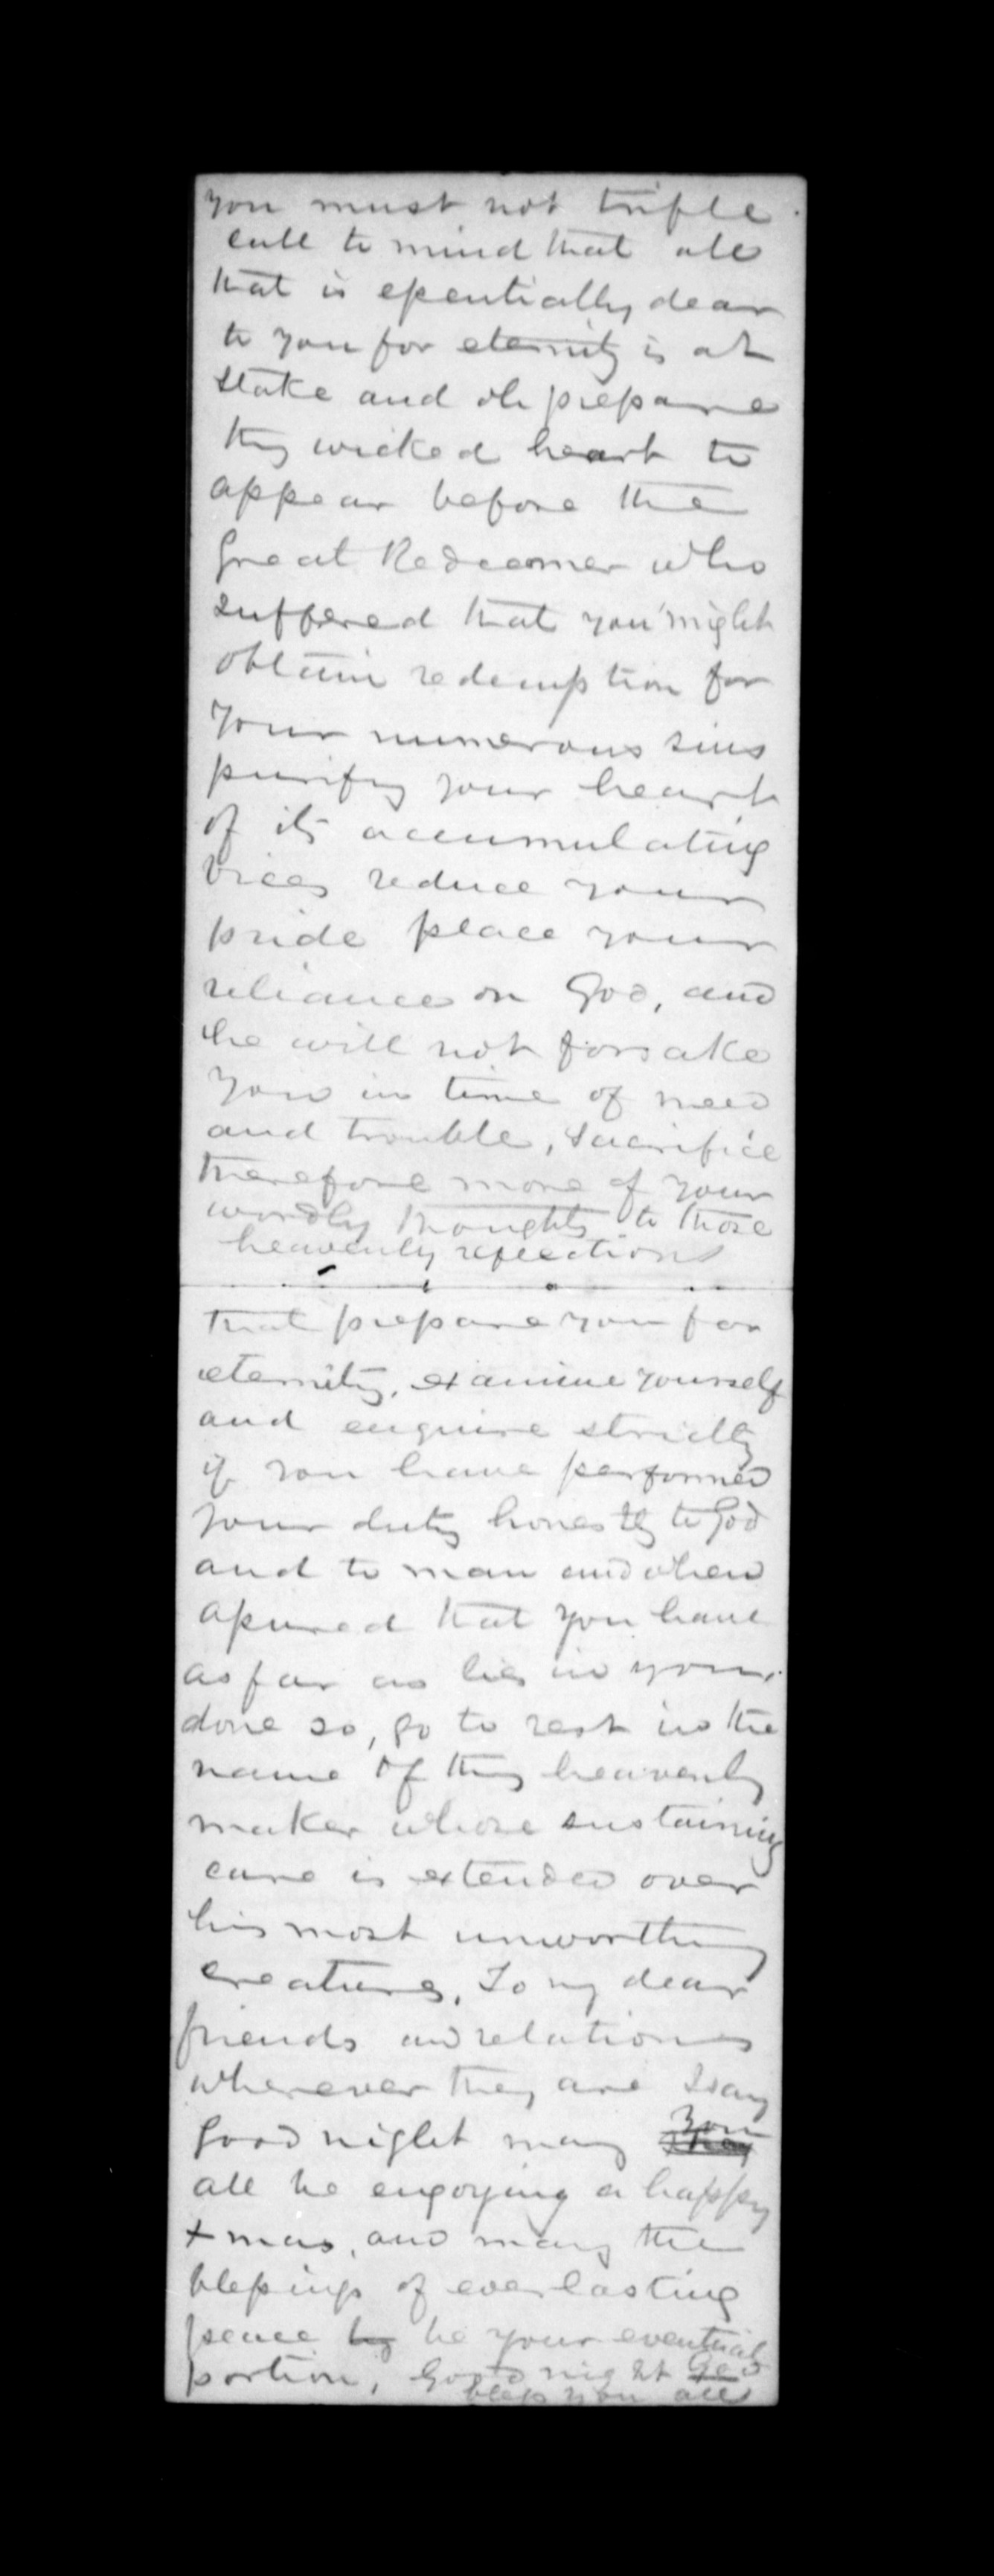 you must not trifle
call to mind that all
that is essentially dear
to you for eternity is at
stake and oh prepare
thy wicked heart to
appear before the
Great Redeemer who
suffered that you might
obtain redemption for
your numerous sins
purify your heart
of its accumulating
vices reduce your
pride place your
reliance on God, and
he will not forsake
you in time of need
and trouble, sacrifice
therefore more of your
wordly thoughts to those
heavenly reflections
that prepare you for
eternity, examine yourself
and enquire strictly
if you have performed
your duty honestly to God
and to man and when
assured that you have
as far as lies in your
done so, go to rest in the
name of thy heavenly
maker whose sustaining
care is extended over
his most unworthy
creatures, To my dear
friends and relations
wherever they are I say
good night may you
all be enjoying a happy
xmas, and may the
blessings of everlasting
peace be your eventual
portion, Good night God
bless you all